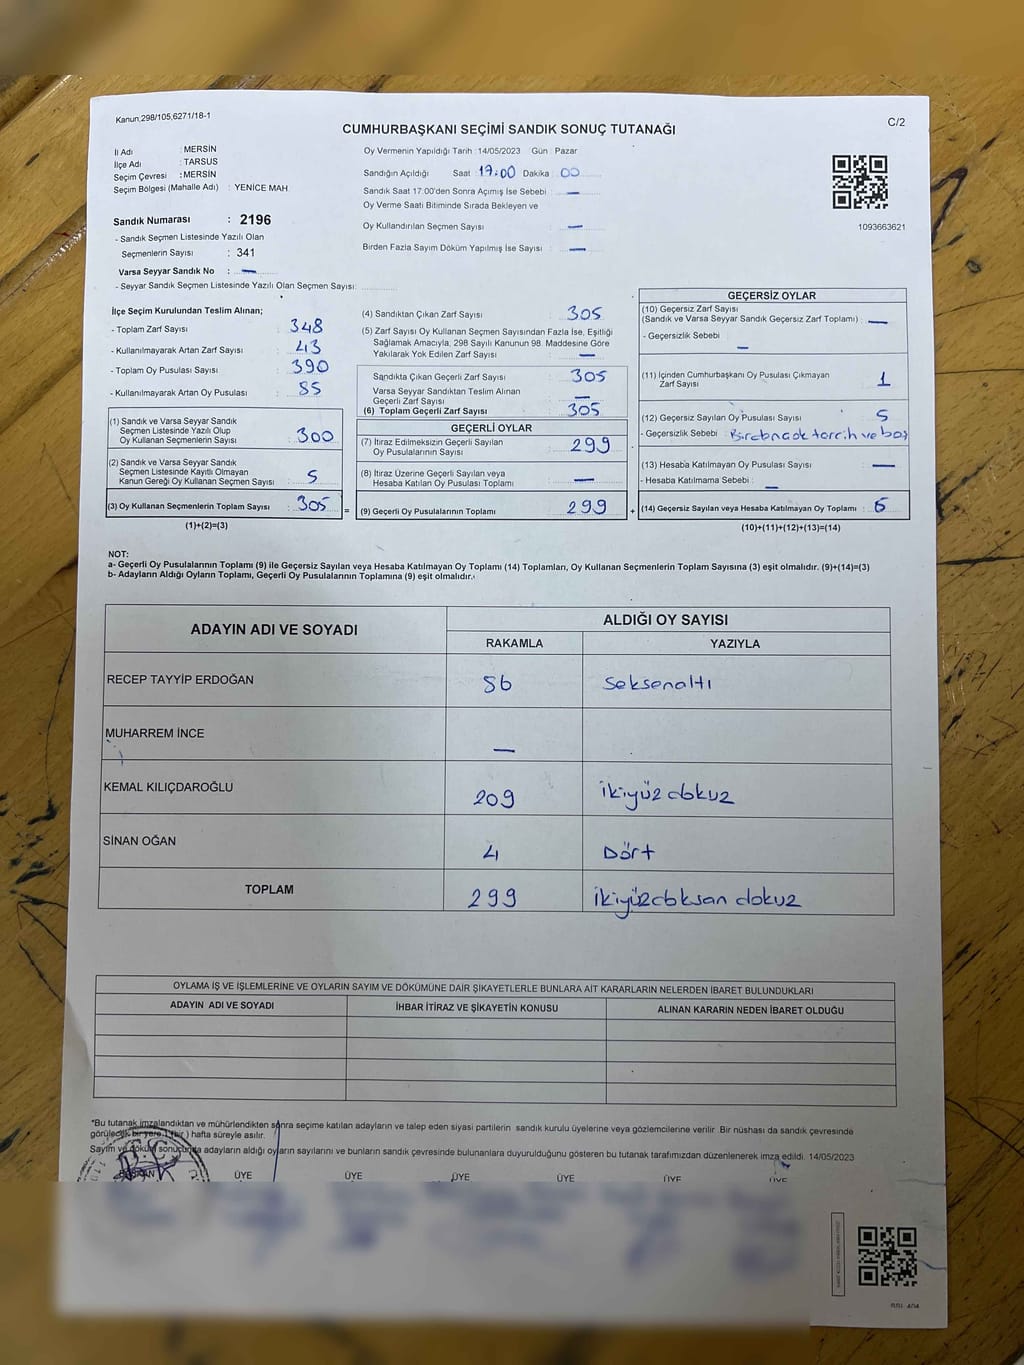 Kanun,298/105,6271/18-1
C/2
CUMHURBAŞKANI SEÇİMİ SANDIK SONUÇ TUTANAĞI
İl Adı : MERSİN
İlçe Adı : TARSUS
Seçim Çevresi : MERSİN
Seçim Bölgesi (Mahalle Adı) : YENİCE MAH.
Sandık Numarası : 2196
- Sandık Seçmen Listesinde Yazılı Olan
Seçmenlerin Sayısı : 341
Varsa Seyyar Sandık No : —
- Seyyar Sandık Seçmen Listesinde Yazılı Olan Seçmen Sayısı:
Oy Vermenin Yapıldığı Tarih :14/05/2023 Gün : Pazar
Sandığın Açıldığı Saat : 17:00 Dakika : 00
Sandık Saat 17:00'den Sonra Açımış İse Sebebi : —
Oy Verme Saati Bitiminde Sırada Bekleyen ve
Oy Kullandırılan Seçmen Sayısı : —
Birden Fazla Sayım Döküm Yapılmış İse Sayısı : —
1093663621
İlçe Seçim Kurulundan Teslim Alınan;
- Toplam Zarf Sayısı : 348
- Kullanılmayarak Artan Zarf Sayısı : 43
- Toplam Oy Pusulası Sayısı : 390
- Kullanılmayarak Artan Oy Pusulası : 85
(1) Sandık ve Varsa Seyyar Sandık
Seçmen Listesinde Yazılı Olup
Oy Kullanan Seçmenlerin Sayısı : 300
(2) Sandık ve Varsa Seyyar Sandık
Seçmen Listesinde Kayıtlı Olmayan
Kanun Gereği Oy Kullanan Seçmen Sayısı : 5
(3) Oy Kullanan Seçmenlerin Toplam Sayısı : 305 =
(1)+(2)=(3)
(4) Sandıktan Çıkan Zarf Sayısı : 305
(5) Zarf Sayısı Oy Kullanan Seçmen Sayısından Fazla İse, Eşitliği
Sağlamak Amacıyla, 298 Sayılı Kanunun 98. Maddesine Göre
Yakılarak Yok Edilen Zarf Sayısı : —
Sandıkta Çıkan Geçerli Zarf Sayısı : 305
Varsa Seyyar Sandıktan Teslim Alınan
Geçerli Zarf Sayısı : —
(6) Toplam Geçerli Zarf Sayısı : 305
GEÇERLİ OYLAR
(7) İtiraz Edilmeksizin Geçerli Sayılan
Oy Pusulalarının Sayısı : 299
(8) İtiraz Üzerine Geçerli Sayılan veya
Hesaba Katılan Oy Pusulası Toplamı : —
(9) Geçerli Oy Pusulalarının Toplamı : 299 +
GEÇERSİZ OYLAR
(10) Geçersiz Zarf Sayısı
(Sandık ve Varsa Seyyar Sandık Geçersiz Zarf Toplamı) : —
- Geçersizlik Sebebi : —
(11) İçinden Cumhurbaşkanı Oy Pusulası Çıkmayan
Zarf Sayısı : 1
(12) Geçersiz Sayılan Oy Pusulası Sayısı : 5
- Geçersizlik Sebebi : tercih ve boş
(13) Hesaba Katılmayan Oy Pusulası Sayısı : —
- Hesaba Katılmama Sebebi : —
(14) Geçersiz Sayılan veya Hesaba Katılmayan Oy Toplamı : 6
(10)+(11)+(12)+(13)=(14)
NOT:
a- Geçerli Oy Pusulalarının Toplamı (9) ile Geçersiz Sayılan veya Hesaba Katılmayan Oy Toplamı (14) Toplamları, Oy Kullanan Seçmenlerin Toplam Sayısına (3) eşit olmalıdır. (9)+(14)=(3)
b- Adayların Aldığı Oyların Toplamı, Geçerli Oy Pusulalarının Toplamına (9) eşit olmalıdır.
ADAYIN ADI VE SOYADI
ALDIĞI OY SAYISI
RAKAMLA YAZIYLA
RECEP TAYYİP ERDOĞAN 86 Seksenaltı
MUHARREM İNCE —
KEMAL KILIÇDAROĞLU 209 ikiyüz dokuz
SİNAN OĞAN 4 Dört
TOPLAM 299 ikiyüzdoksan dokuz
OYLAMA İŞ VE İŞLEMLERİNE VE OYLARIN SAYIM VE DÖKÜMÜNE DAİR ŞİKAYETLERLE BUNLARA AİT KARARLARIN NELERDEN İBARET BULUNDUKLARI
ADAYIN ADI VE SOYADI İHBAR İTİRAZ VE ŞİKAYETİN KONUSU ALINAN KARARIN NEDEN İBARET OLDUĞU
*Bu tutanak imzalandıktan ve mühürlendikten sonra seçime katılan adayların ve talep eden siyasi partilerin sandık kurulu üyelerine veya gözlemcilerine verilir. Bir nüshası da sandık çevresinde
görülecek bir yere 1 (bir ) hafta süreyle asılır.
Sayım ve döküm sonucunda adayların aldığı oyların sayılarını ve bunların sandık çevresinde bulunanlara duyurulduğunu gösteren bu tutanak tarafımızdan düzenlenerek imza edildi. 14/05/2023
BAŞKAN ÜYE ÜYE ÜYE ÜYE ÜYE ÜYE